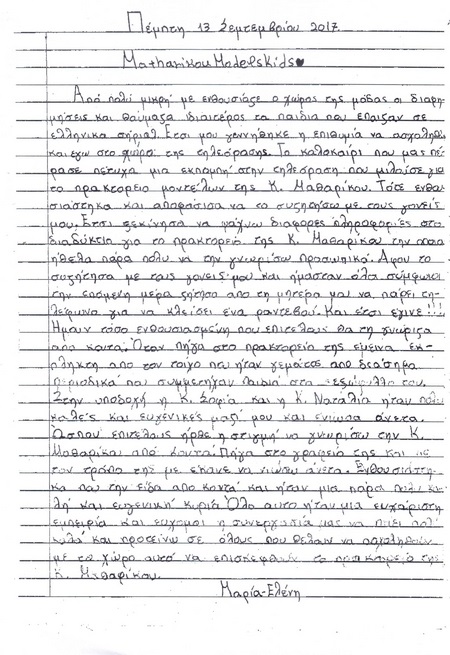 Πέμπτη 13 Σεμτεμβρίου 2017.
Matharikou Models Kids
Από πολύ μικρή με ενθουσιάζε ο χώρος της μόδας οι διαφη-
μήσεις και θαύμαζα ιδιαιτέρος τα παιδια που επαιζαν σε
ελληνικα σήριαλ. Ετσι μου γεννήθηκε η επιθυμία να ασχοληθώ
και εγω στο χώρο της τηλεόρασης. Το καλοκαίρι που μας πέ-
ρασε πέτυχα μια εκπομπή στην τηλεόραση που μιλούσε για
το πρακτορείο μοντέλων της Κ. Μαθαρίκου. Τότε ενθου-
σιάστηκα και αποφάσισα να το συζητήσω με τους γονείς
μου. Ετσι ξεκίνησα να ψάχνω διαφορες πληροφορίες στο
διαδύκτιο για το πρακτορείο της Κ. Μαθαρίκου την οποία
ήθελα πάρα πολυ να την γνωρίσω προσωπικά. Αφου το
συζήτησα με τους γονεις μου και ήμασταν όλοι σύμφωνοι
την επόμενη μέρα ζήτησα απο τη μητερα μου να πάρει τη-
λέφωνο για να κλείσει ένα ραντεβού. Και έτσι έγινε!!!
Ημουν τόσο ενθουσιασμένη που επιτελους θα τη γνώριζα
απο κοντα. Όταν πήγα στο πρακτορείο της εμεινα έκ-
πληκτη απο τον τοίχο που ήταν γεμάτος απο διάσημα
περιοδικά που συμμετήχαν παιδιά στα εξώφυλλο του.
Στην υποδοχή η Κ. Σοφία και η Κ. Ναταλία ήταν πολυ
καλές και ευγενικές μαζί μου και ενιωσα άνετα.
Ωσπου επιτέλους ήρθε η στιγμή να γνωρίσω την Κ.
Μαθαρίκου από κοντα. Πήγα στο γραφείο της και με
τον τρόπο της με έκανε να νιώσω άνετα. Ενθουσιάστη-
κα που την είδα απο κοντά και ήταν μια πάρα πολυ κα-
λή και ευγενική κυρία Όλο αυτο ήταν μια ευχάριστη
εμπειρία και ευχομαι η συνεργασία μας να πάει πολύ
καλά και προτείνω σε όλους που θέλουν να ασχοληθούν
με το χώρο αυτό να επισκεφθουν το πρακτορείο της
Κ. Μαθαρίκου.
Μαρία-Ελένη